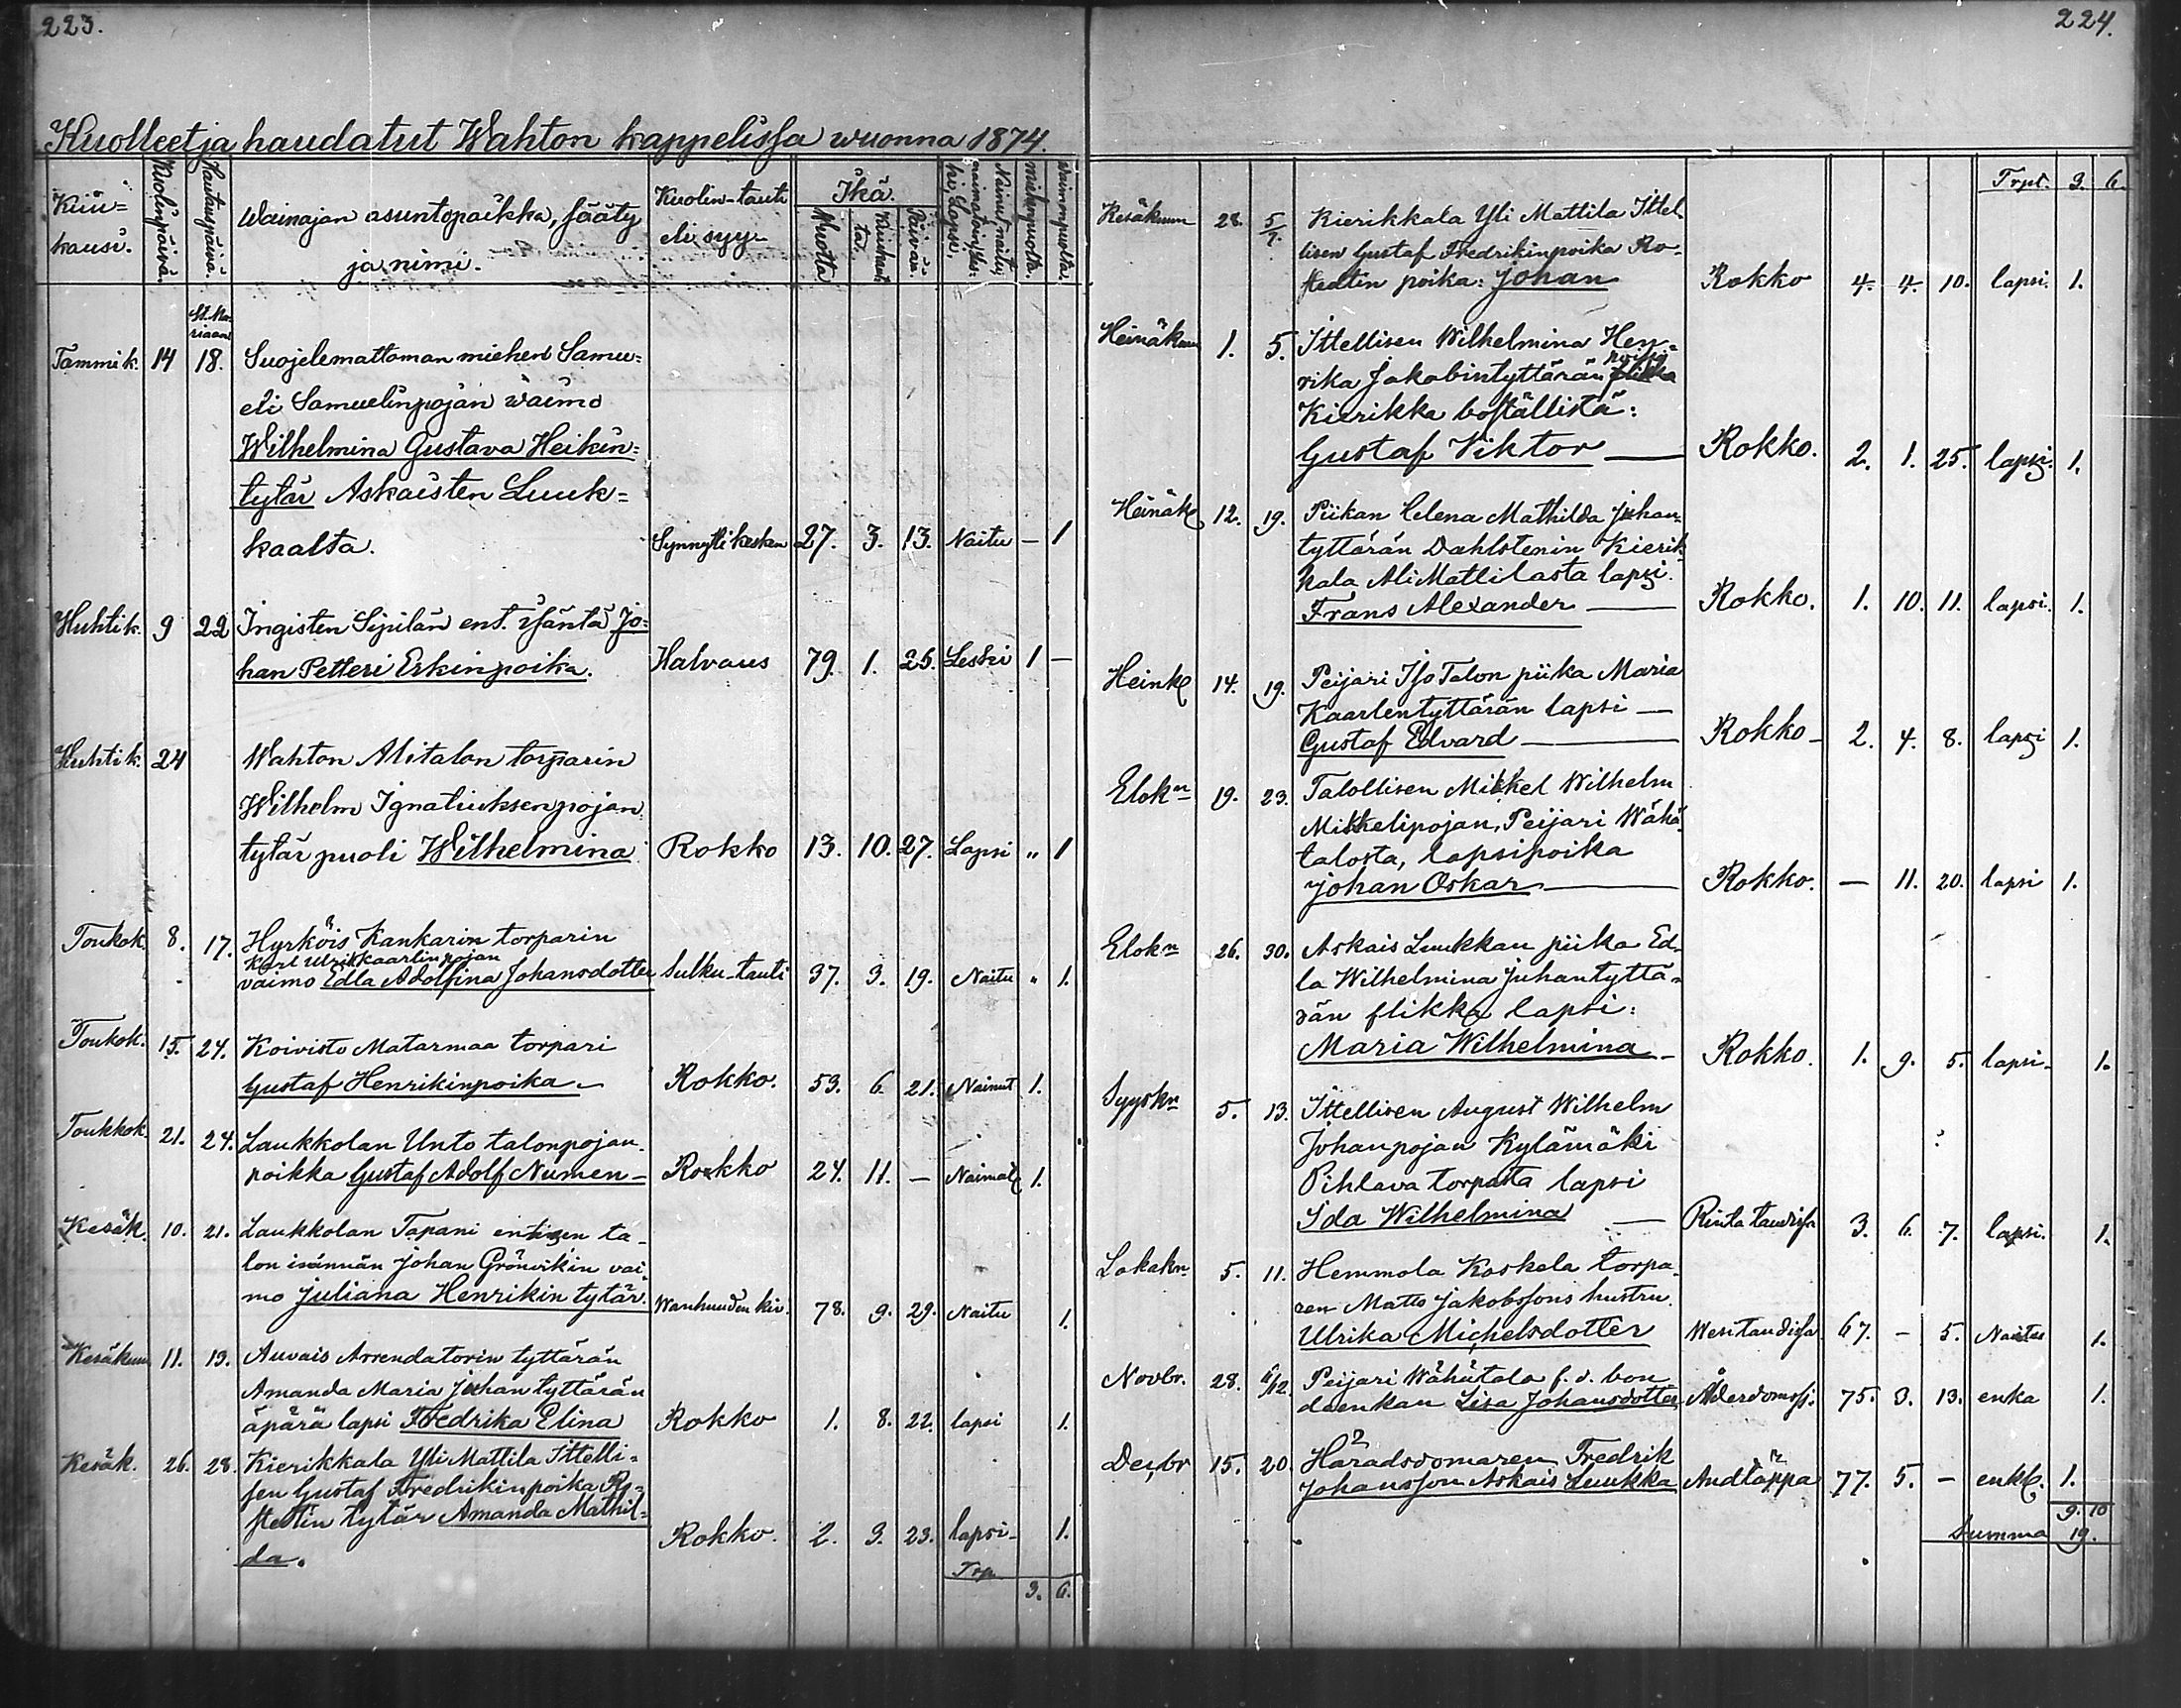 223.
Kuolleet ja haudatut Wahton kappelissa wuonna 1874.
Kuu=
kausi.
Kuolinpäivä.
Hautuspäivä.
Wainajan asuntopaikka, sääty
ja nimi.
Kuolin-tauti
eli syy.
Ikä.
Wuotta
Kuukaut
tat.
Päivää.
Nainut, naitu,
naimatoin, les-
ki, Lapsi.
miehenpuolta.
waimonpuolta.
St. Ma-
riaan
Tammik. 14 18. Suojelemattoman miehen Samu=
eli Samuelinpojan waimo
Wilhelmina Gustava Heikin=
tytär Askaisten Luuk=
kaalta. Synnytti kesken 27. 3. 13. Naitu — 1
Huhtik. 9 22 Ingisten Sipilän ent. isäntä Jo=
han Petteri Erkinpoika. Halvaus 79. 1. 26. Leski 1 —
Huhtik. 24 Wahton Alitalon torparin
Wilhelm Ignatiuksenpojan
tytär puoli Wilhelmina Rokko 13. 10. 27. Lapsi " 1
Toukok. 8. 17. Hyrköis Kankarin torparin
Karl Ulrik Kaarlinpojan
vaimo Edla Adolfina Johansdotter Sulku-tauti 37. 3. 19. Naitu " 1.
Toukok. 15. 24. Koivisto Matarmaa torpari
Gustaf Henrikinpoika — Rokko. 53. 6. 21. Nainut 1.
Toukkok. 21. 24. Laukkolan Unto talonpojan
poikka Gustaf Adolf Numen — Rokko 24. 11. — Naimat 1.
Kesäk. 10. 21. Laukkolan Tapani entisen ta-
lon isännän Johan Grönvikin vai-
mo Juliana Henrikin tytär. Wanhuuden kiv. 78. 9. 29. Naitu 1.
Kesäkuun 11. 13. Auvais Arrendatorin tyttärän
Amanda Maria Juhantyttärän
äpärä lapsi Fredrika Elina Rokko 1. 8. 22. lapsi 1.
Kesäk. 26. 28. Kierikkala Yli Mattila Ittelli-
sen Gustaf Fredrikinpoika Ro-
stedtin tytär Amanda Mathil=
da. Rokko. 2. 3. 23. lapsi- 1.
Trp 3. 6.
224.
Trpt. 3. 6.
Kesäkuun 28. 5/7. Kierikkala Yli Mattila Ittel-
lisen Gustaf Fredrikinpoika Ro-
stedtin poika: Johan Rokko 4. 4. 10. lapsi. 1.
Heinäkuun 1. 5. Ittellisen Wilhelmina Hen=
rika Jakobintyttärän poika
Kierikka boställistä:
Gustaf Viktor — Rokko. 2. 1. 25. lapsi. 1.
Heinäk 12. 19. Piikan Helena Mathilda Juhan-
tyttärän Dahlstenin Kierik-
kala Ali Mattilasta lapsi.
Frans Alexander — Rokko. 1. 10. 11. lapsi. 1.
Heink 14. 19. Peijari Iso Talon piika Maria
Kaarlentyttärän lapsi —
Gustaf Edvard — Rokko — 2. 4. 8. lapsi 1.
Elokn 19. 23. Talollisen Mikkel Wilhelm
Mikkelipojan, Peijari Wähä-
talosta, lapsipoika
Johan Oskar — Rokko. — 11. 20. lapsi 1.
Elokn 26. 30. Askais Luukkan piika Ed-
la Wilhelmina Juhantyttä-
rän flikka lapsi:
Maria Wilhelmina — Rokko. 1. 9. 5. lapsi- 1.
Syyskn 5. 13. Ittellisen August Wilhelm
Johanpojan Kylämäki
Pihlava torpasta lapsi
Ida Wilhelmina — Rinta taudissa 3. 6. 7. lapsi. 1.
Lokakn. 5. 11. Hemmola Koskela torpa-
ren Matts Jakobssons hustru
Ulrika Michelsdotter Wesitaudissa 67. - 5. Naitu 1.
Novbr. 28. 6/12. Peijari Wähätalo f. d. bon
deenkan Lisa Johansdotter Ålderdomssj: 75. 3. 13. enka 1.
Decbr 15. 20. Häradsdomaren Fredrik
Johansson Askais Luukka Andtäppa 77. 5. - enkl. 1.
9. 10
Summa 19.